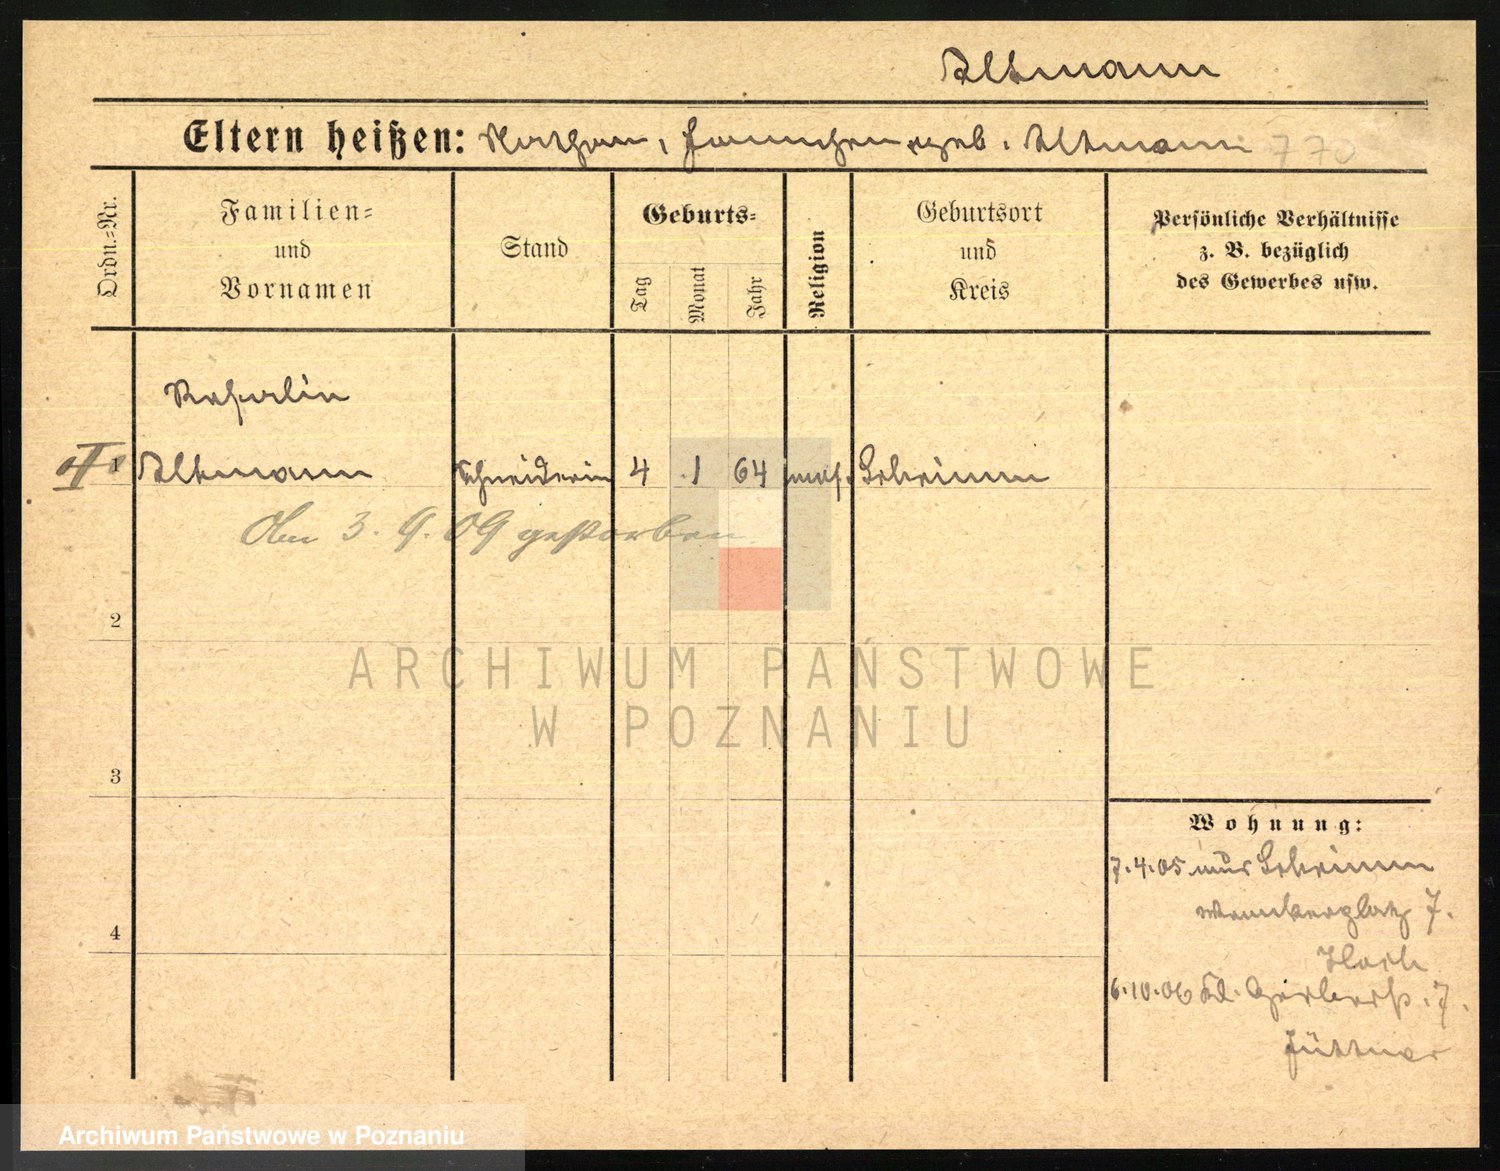 Altmann
Eltern heißen: Nathan, Hannchen geb. Altmann 770
Ordn.=Nr.
Familien=
und
Vornamen
Stand
Geburts=
Tag
Monat
Jahr
Religion
Geburtsort
und
Kreis
Persönliche Verhältnisse
z. B. bezüglich
des Gewerbes usw.
1 Altmann Schneiderin 4 1 64 mos. Schrimm
Am 3. 9. 09 gestorben
2
ARCHIWUM PAŃSTWOWE
W POZNANIU
3
Wohnung:
7.4.05 aus Schrimm
7.
4
6.10.06 Kl. Gerberstr. 7.
Jüttner
Archiwum Państwowe w Poznaniu